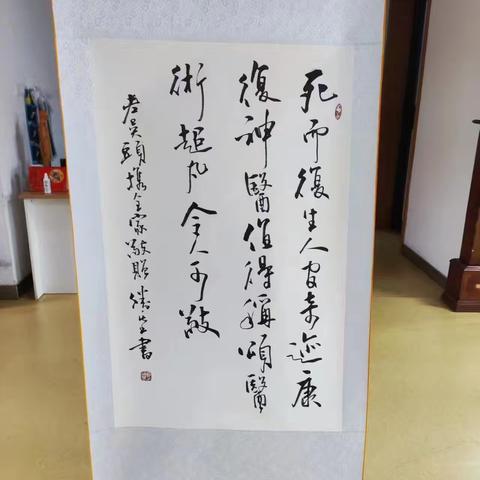 死而復生人间奇迹康
復神醫值得稱頌醫
術超凡令人可敬
老吴頭携全家敬贈 書